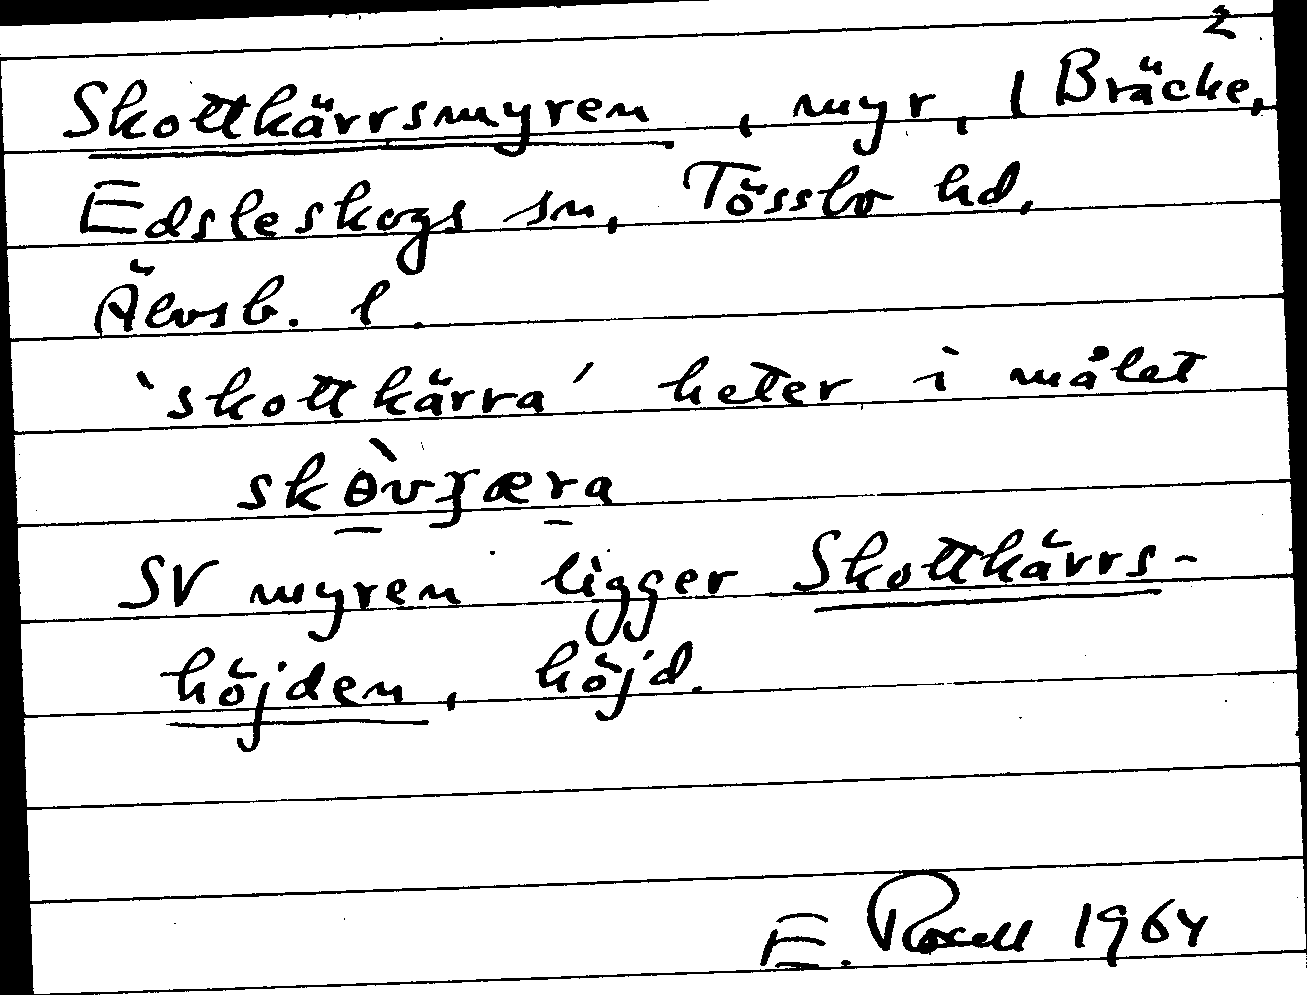 2
Skottkärrsmyren, myr, 1 Bräcke,
Edsleskogs sn, Tössbo hd,
Älvsb. l.
`skottkärra´ heter i målet
SV myren ligger Skottkärrs-
höjden, höjd.
E. Rosell 1964